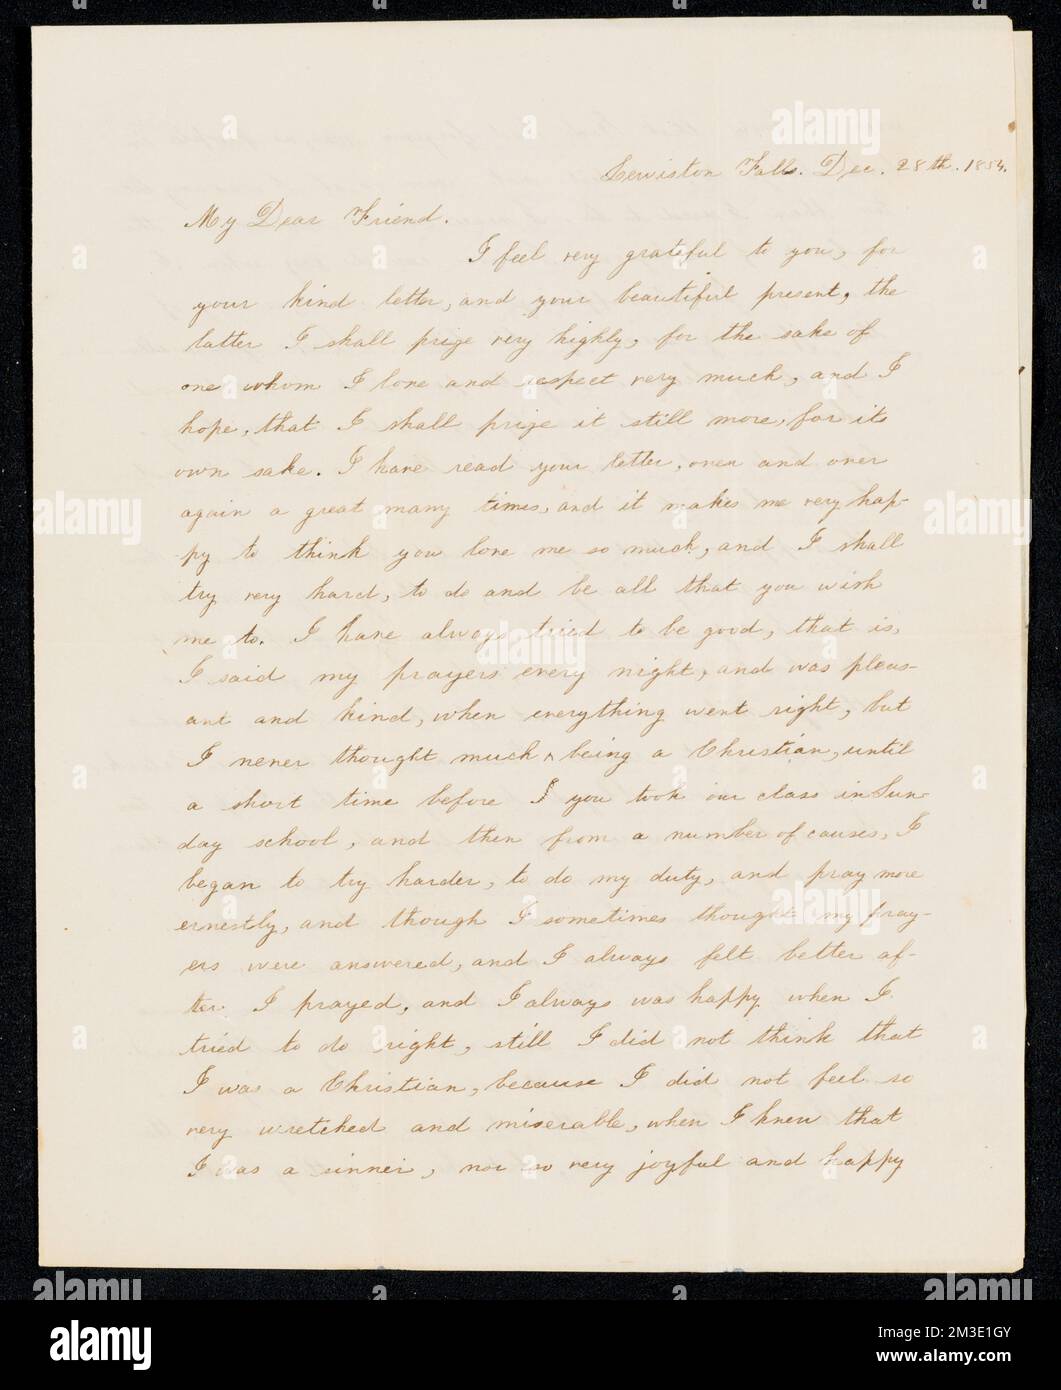 Lewiston Falls. Dec. 28th. 1854.
My Dear Friend.
I feel very grateful to you, for
your kind letter, and your beautiful present, the
latter I shall prize very highly, for the sake of
one whom I love and respect very much, and I
hope, that I shall prize it still more, for its
own sake. I have read your letter, over and over
again a great many times, and it makes me very hap-
py to think you love me so much, and I shall
try very hard, to do and be all that you wish
me to. I have always tried to be good, that is,
I said my prayers every night, and was pleas-
ant and kind, when everything went right, but
I never thought much ^ being a Christian, until
a short time before I you took our class in Sun-
day school, and then from a number of causes, I
began to try harder, to do my duty, and pray more
ernestly, and though I sometimes thought my pray-
ers were answered, and I always felt better af-
ter I prayed, and I always was happy when I
tried to do right, still I did not think that
I was a Christian, because I did not feel so
very wretched and miserable, when I knew that
I was a sinner, nor so very joyful and happy
alamy
Image ID: 2M3E1GY
www.alamy.com